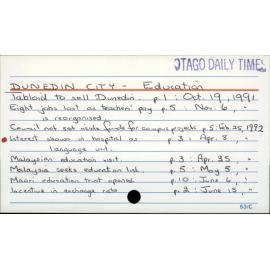 OTAGO DAILY TIMES
DUNEDIN CITY - Education
Tabloid to sell Dunedin. p.1 : Oct. 19, 1991
Eight jobs lost as teachers' pay p.5 : Nov. 6, "
is reorganised.
Council not set aside funds for campus projects p.5: Feb.25, 1992
Interest shown in hospital as p.3 : Apr. 8, "
language unit.
Malaysian education visit. p.3 : Apr. 25, "
Malaysia seeks education link. p.5 : May 5, "
Maori education trust opened p.10 : June 6, "
Incentive in exchange rate p.2 : June 15, "
53/C